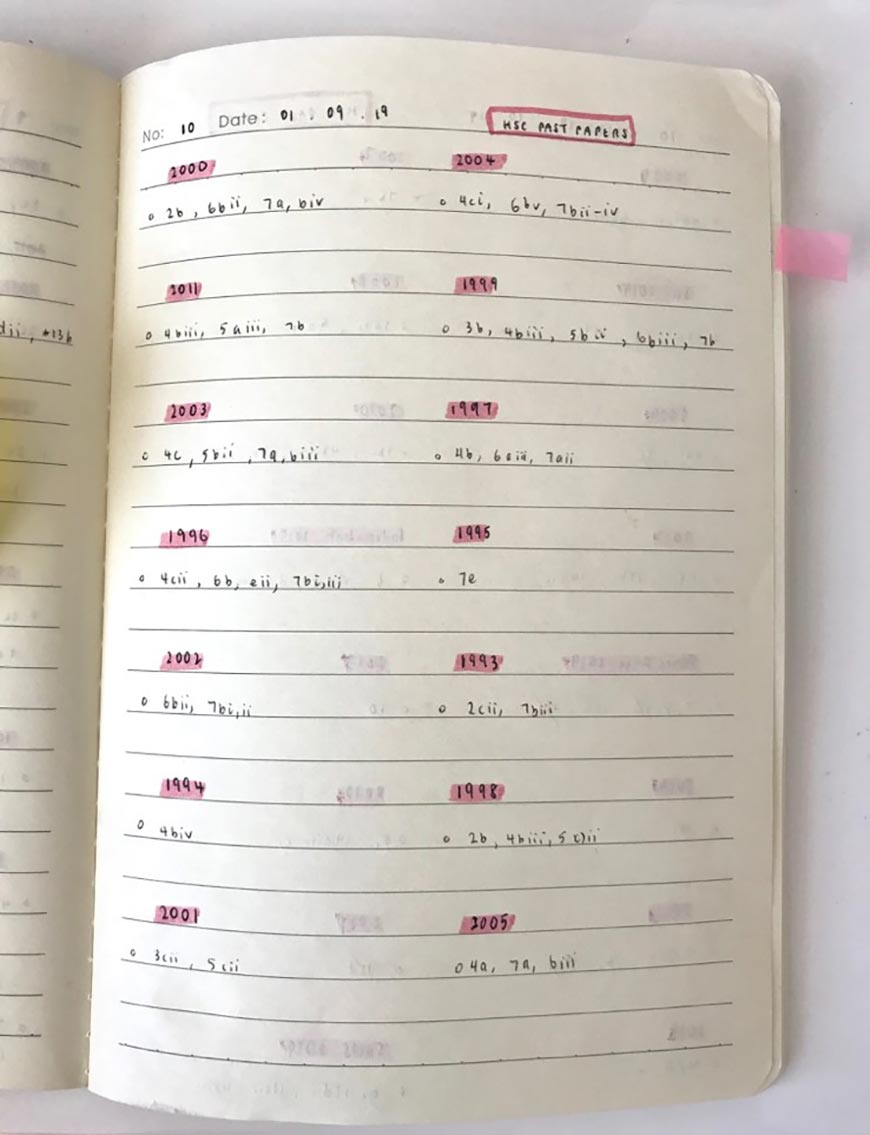 No: 10 Date: 01 . 09 . 19 HSC PAST PAPERS
2000 2004
o 2b, 6bii, 7a, biv o 4ci, 6bv, 7bii-iv
2011 1999
o 4biii, 5aiii, 7b o 3b, 4biii, 5bii, 6biii, 7b
dii, *13b
2003 1997
o 4c, 5bii, 7a, biii o 4b, 7aii
1996 1995
o 4cii, 6b, eii, 7bi,iii o 7e
2002 1993
o 6bii, 7bi,ii o 2cii, 7biii
1994 1998
o 4biv o 2b, 4biii, 5c)ii
2001 2005
o 3cii, 5cii o 4a, 7a, biii